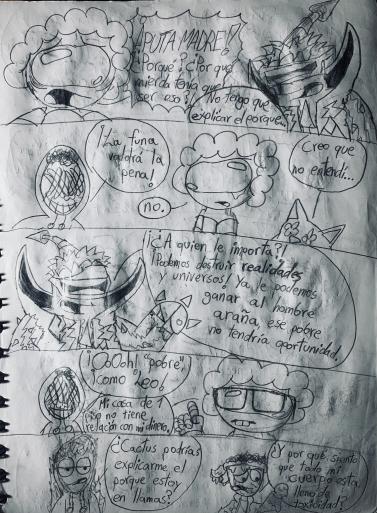 ¡PUTA MADRE!
¿Porque? ¿Por qué
mierda tenía que
ser eso?
No tengo que
explicar el porque...
¡La funa
valdrá la
pena!
no.
Creo que
no entendí...
¡¿A quien le importa?!
¡Podemos destruir realidades
y universos! Ya le podemos
ganar al hombre
araña, ese pobre
no tendría oportunidad.
¡OoOoh! "pobre"
¡Como leo!
Mi casa de 1
piso no tiene
relación con mi dinero.
¿Cactus podrías
explicarme el
porque estoy
en llamas?
¿Y por qué siento
que todo mi
cuerpo esta
lleno de
toxicidad?